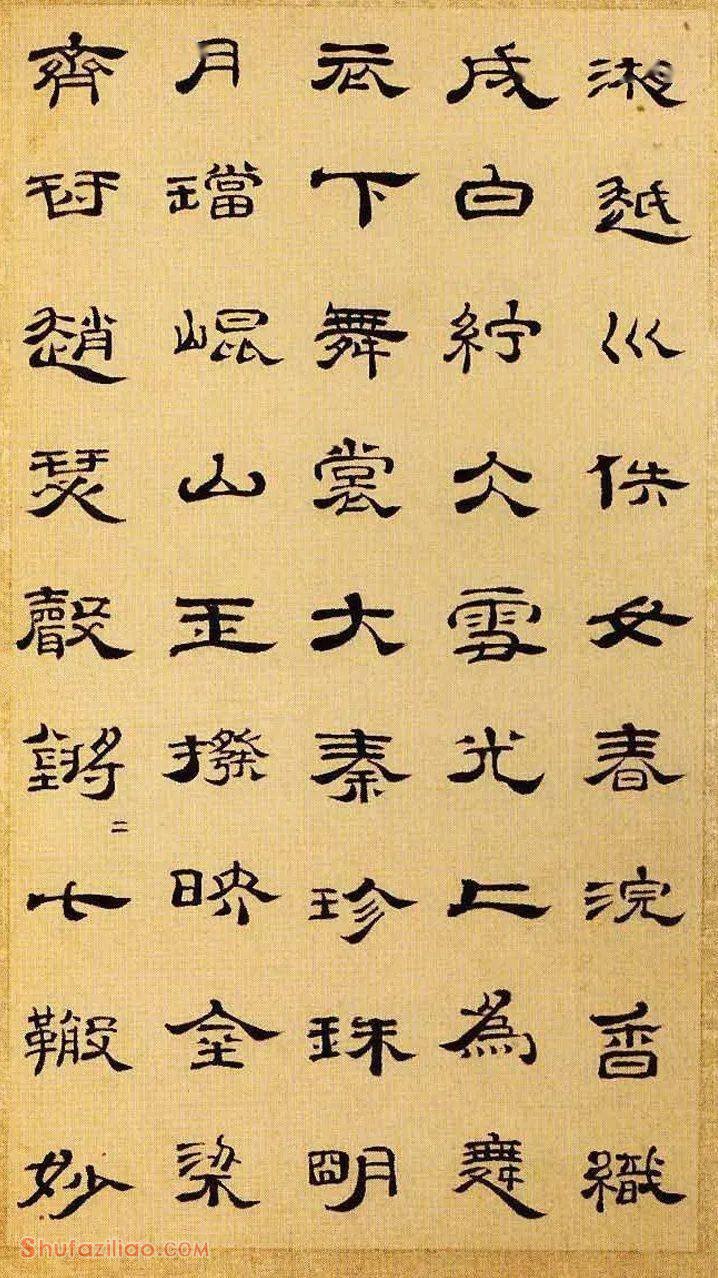 湘越巛佚女春浣香織
成白紵仌雪光上為舞
衣下舞裳大秦珍珠明
月璫崐山玉撥映金梁
齊琴趙瑟聲鏘二七鞶妙
Shufaziliao.COM